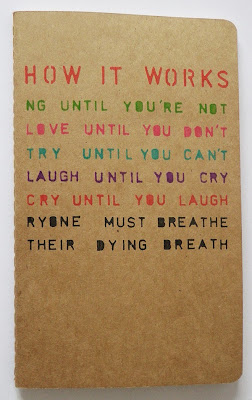 HOW IT WORKS
NG UNTIL YOU'RE NOT
LOVE UNTIL YOU DON'T
TRY UNTIL YOU CAN'T
LAUGH UNTIL YOU CRY
CRY UNTIL YOU LAUGH
RYONE MUST BREATHE
THEIR DYING BREATH